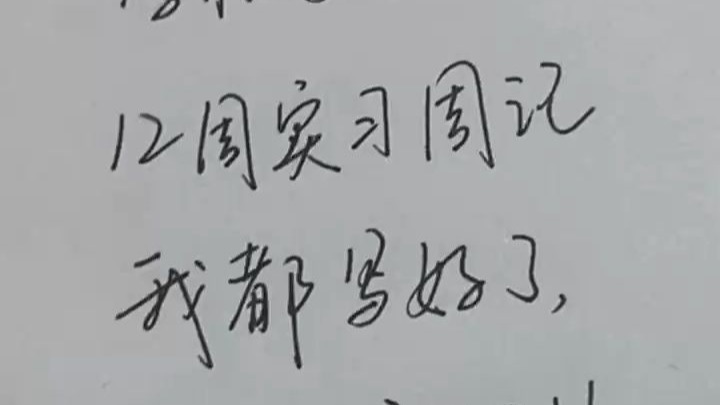 12周实习周记
我都写好了,